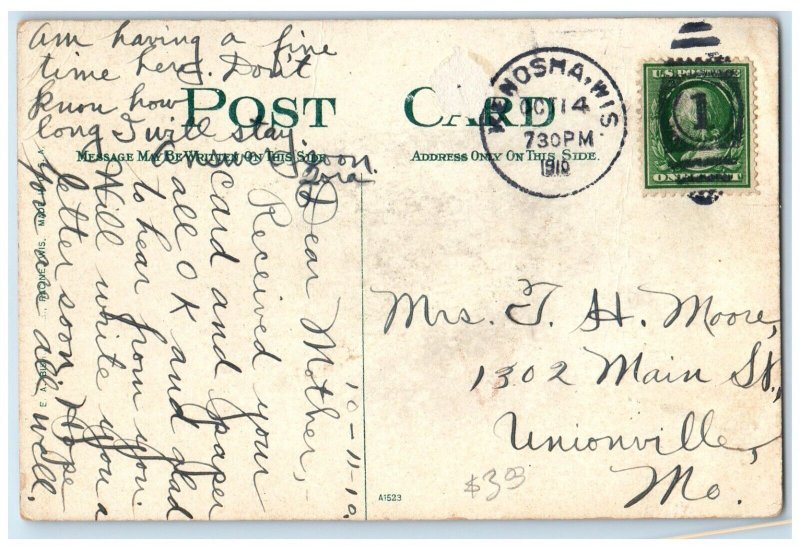 POST CARD
MESSAGE MAY BE WRITTEN ON THIS SIDE
ADDRESS ONLY ON THIS SIDE.
KENOSHA, WIS.
OCT 14
7 30 PM
1910
U.S. POSTAGE
1
10-11-10.
Dear Mother,-
Received your
card and paper
all OK and glad
to hear from you.
Will white you a
letter soon. Hope
you are all well.
am having a fine
time here. Don't
know how
long I will stay.
Answer soon.
Mrs. T. H. Moore,
1302 Main St.,
Unionville,
Mo.
$3.00
A1523